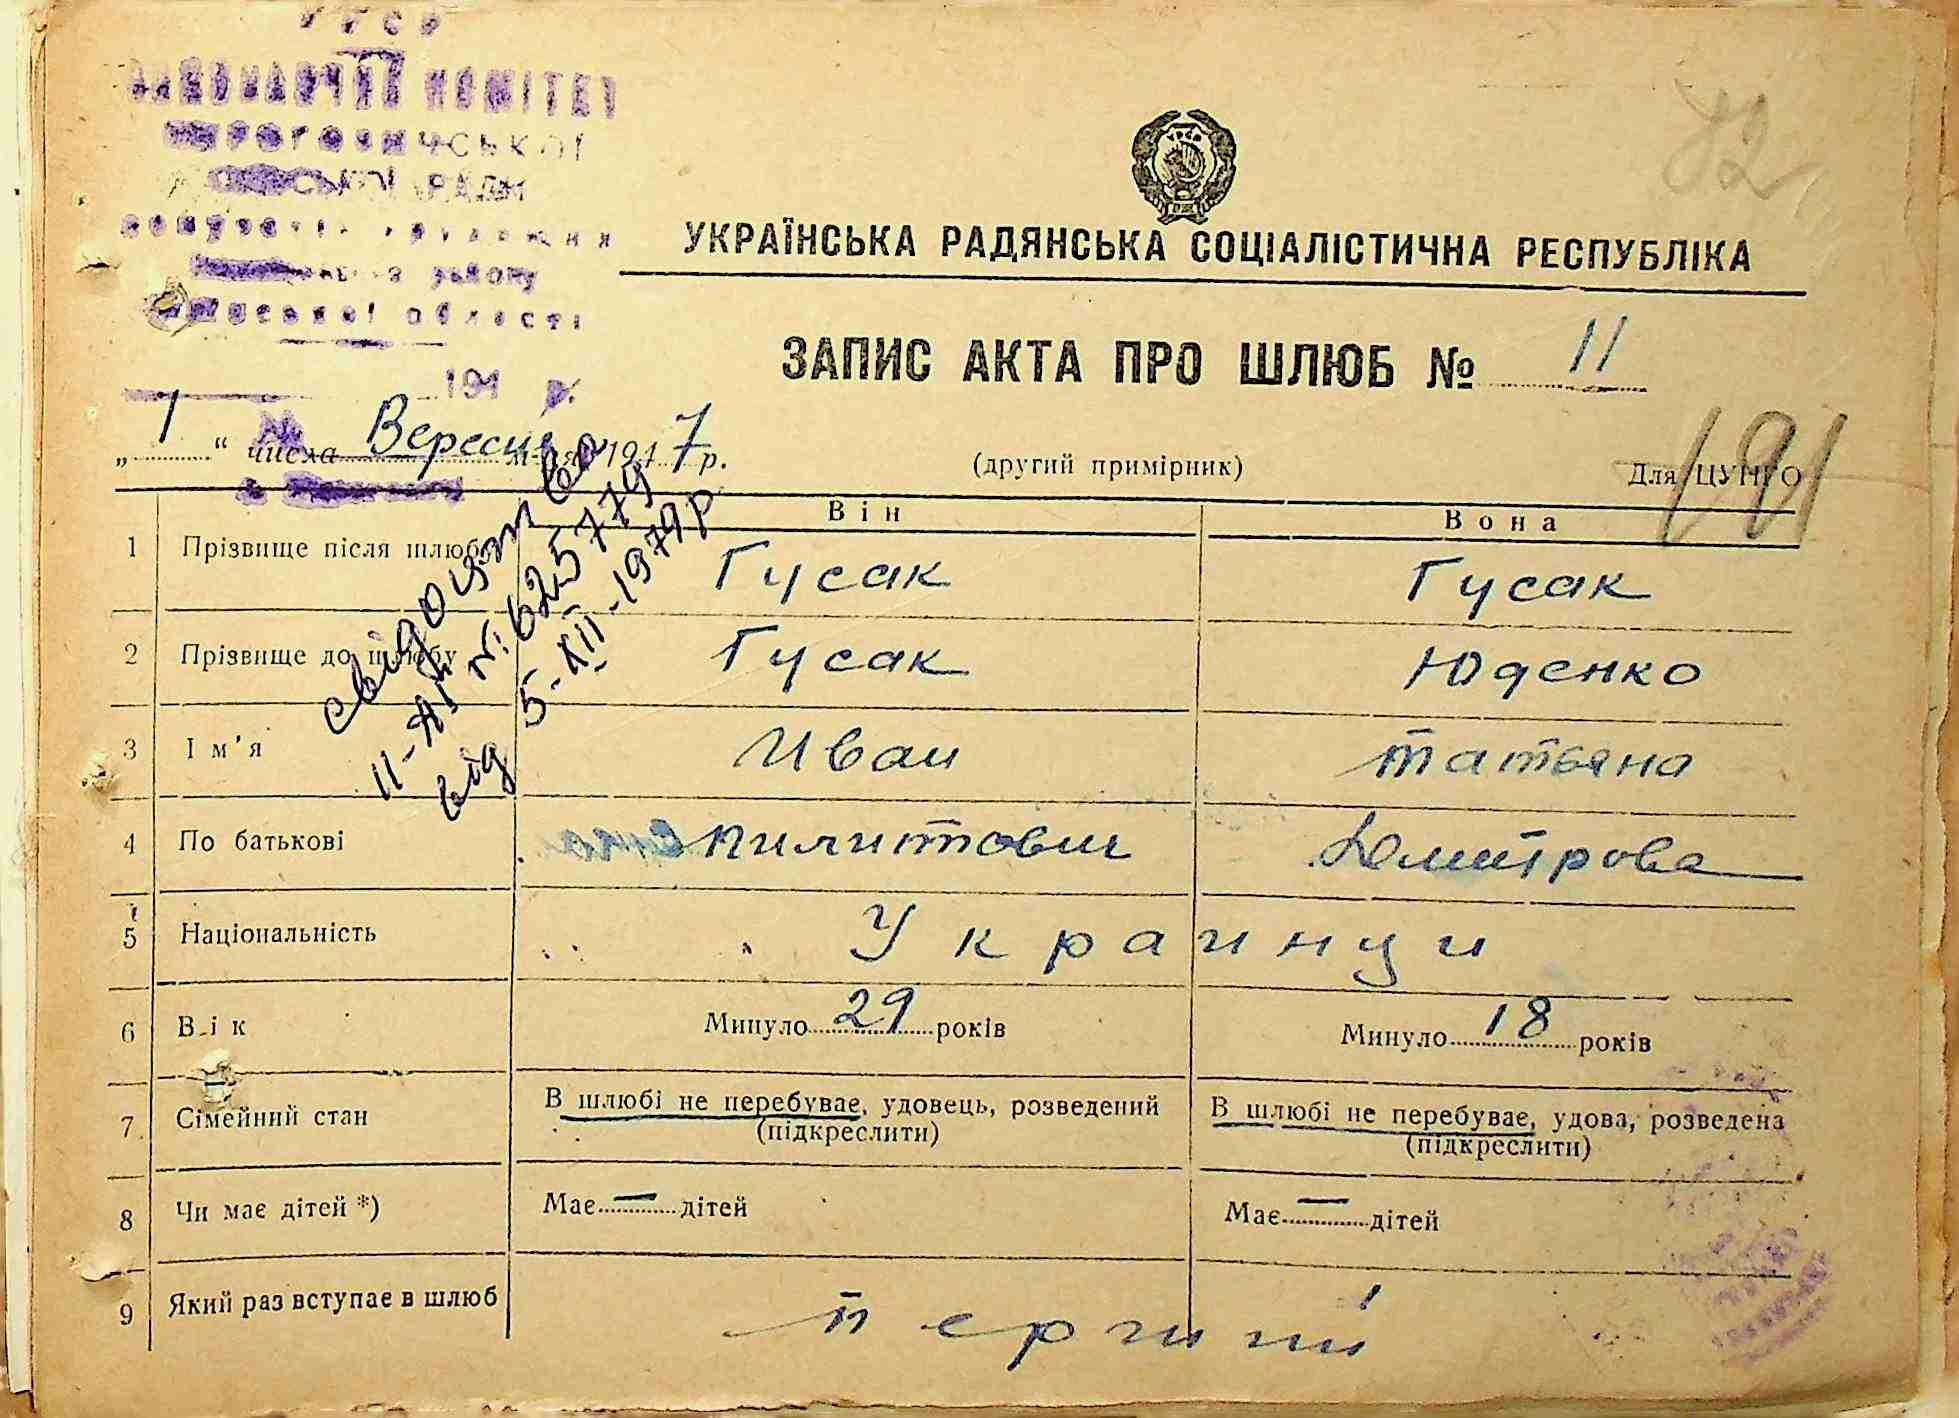 УРСР
ВИКОНАВЧИЙ КОМІТЕТ
СЬКОЇ РАДИ
району
області
194 р.
92
УКРАЇНСЬКА РАДЯНСЬКА СОЦІАЛІСТИЧНА РЕСПУБЛІКА
ЗАПИС АКТА ПРО ШЛЮБ № 11
„ 1 “ числа Вересня м-ця 1947 р.
(другий примірник)
Для ЦУНГО
191
свідоцтво
II-ЯГ №: 625779
від 5-XII-1979р
Він Вона
1 Прізвище після шлюбу Гусак Гусак
2 Прізвище до шлюбу Гусак Юденко
3 Ім’я Иван Татьяна
4 По батькові Пилитович Дмитрова
5 Національність Украинци
6 Вік Минуло 29 років Минуло 18 років
7 Сімейний стан В шлюбі не перебуває, удовець, розведений В шлюбі не перебуває, удова, розведена
(підкреслити) (підкреслити)
8 Чи має дітей *) Має — дітей Має — дітей
9 Який раз вступає в шлюб перший